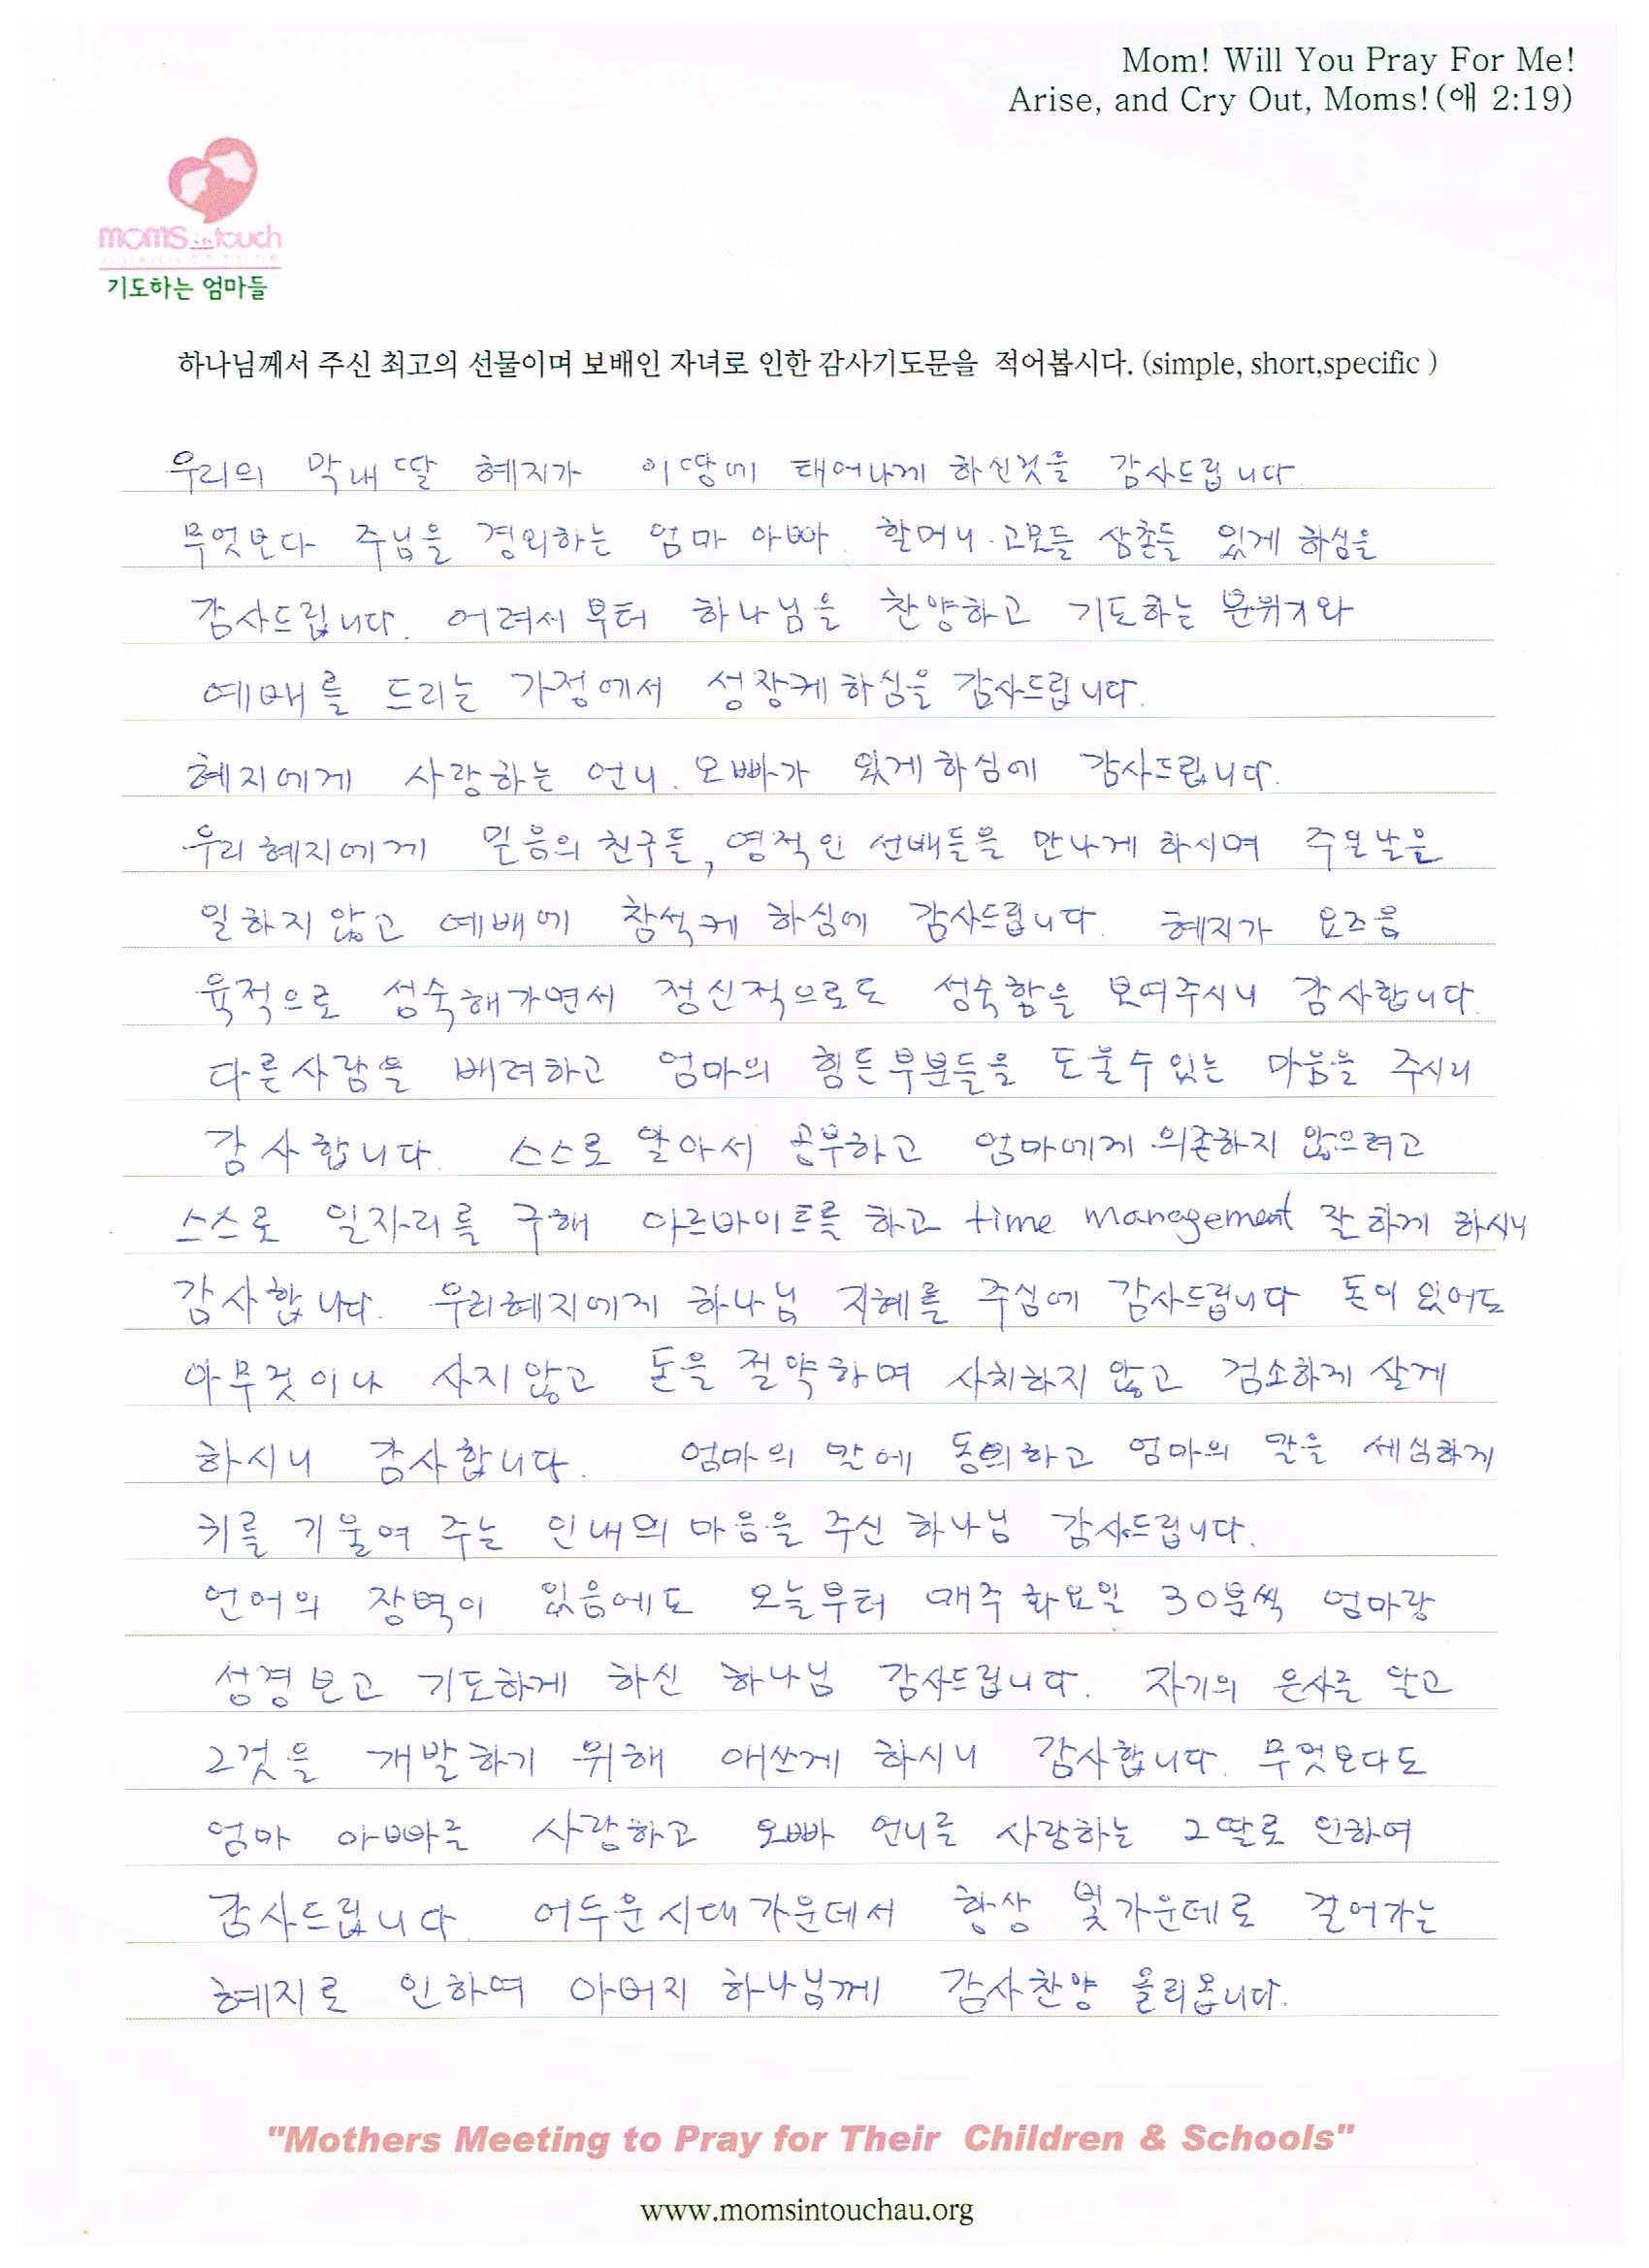 Mom! Will You Pray For Me!
Arise, and Cry Out, Moms!(애 2:19)
moms in touch
기도하는 엄마들
하나님께서 주신 최고의 선물이며 보배인 자녀로 인한 감사기도문을 적어봅시다. (simple, short,specific )
우리의 막내 딸 혜지가 이땅에 태어나게 하신것을 감사드립니다
무엇보다 주님을 경외하는 엄마 아빠. 할머니.고모들 삼촌들 있게 하심을
감사드립니다. 어려서 부터 하나님을 찬양하고 기도하는 분위기와
예배를 드리는 가정에서 성장케하심을 감사드립니다.
혜지에게 사랑하는 언니. 오빠가 있게하심에 감사드립니다.
우리혜지에게 믿음의 친구들, 영적인 선배들을 만나게 하시며 주일날을
일하지 않고 예배에 참석케 하심에 감사드립니다. 혜지가 요즈음
육적으로 성숙해가면서 정신적으로도 성숙함을 보여주시니 감사합니다.
다른사람을 배려하고 엄마의 힘든부분들을 도울수있는 마음을 주시니
감사합니다. 스스로 알아서 공부하고 엄마에게 의존하지 않으려고
스스로 일자리를 구해 아르바이트를 하고 time manegement 잘하게 하시니
감사합니다. 우리혜지에게 하나님 지혜를 주심에 감사드립니다 돈이 있어도
아무것이나 사지않고 돈을 절약하며 사치하지 않고 검소하게 살게
하시니 감사합니다. 엄마의 말에 동의하고 엄마의 말을 세심하게
귀를 기울여 주는 인내의 마음을 주신 하나님 감사드립니다.
언어의 장벽이 있음에도 오늘부터 매주 화요일 30분씩 엄마랑
성경보고 기도하게 하신 하나님 감사드립니다. 자기의 은사를 알고
그것을 개발하기 위해 애쓰게 하시니 감사합니다. 무엇보다도
엄마 아빠를 사랑하고 오빠 언니를 사랑하는 그딸로 인하여
감사드립니다. 어두운시대가운데서 항상 빛가운데로 걸어가는
혜지로 인하여 아버지 하나님께 감사찬양 올리옵니다.
"Mothers Meeting to Pray for Their Children & Schools"
www.momsintouchau.org